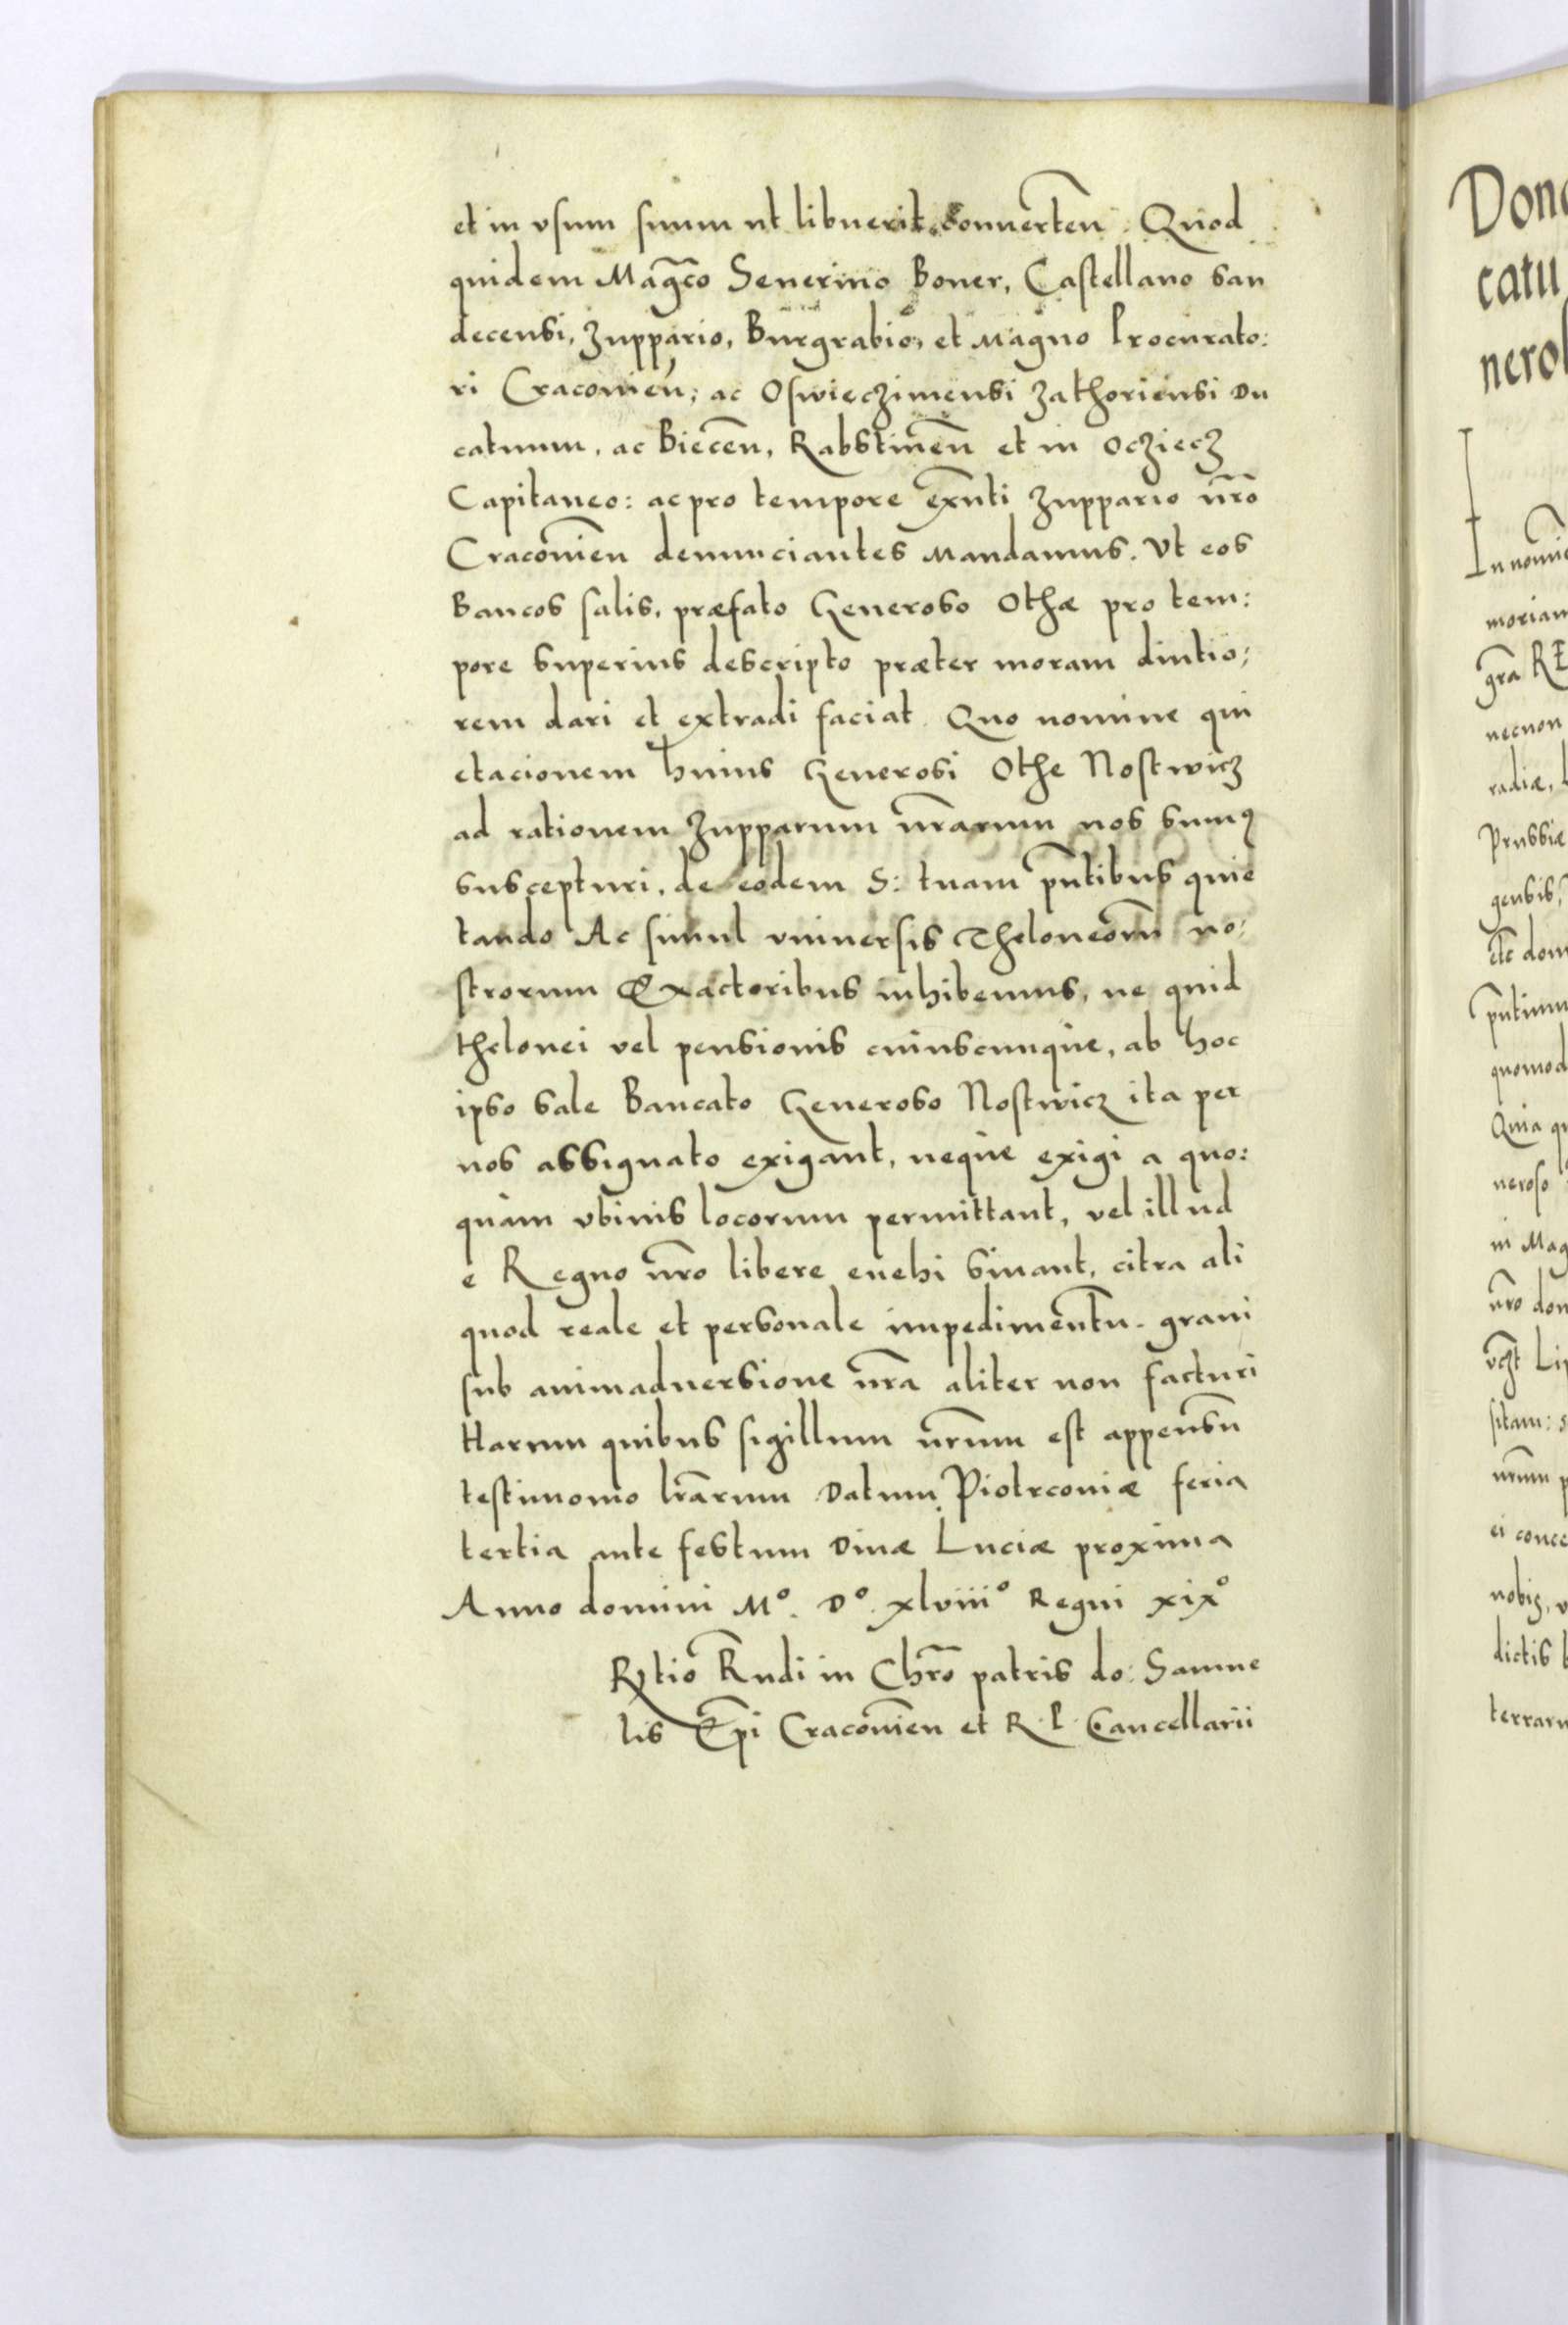 et in vsum suum ut libuerit conuerten̄. Quod
quidem Mag̃co Seuerino Boner, Castellano san
decensi, zuppario, Burgrabio, et Magno Procurato:
ri Cracouień; ac Oswieczimensi zathoriensi Du
catuum, ac Biecen̄, Rabstinen̄ et in Ocziecz
Capitaneo: ac pro tempore exn̄ti zuppario nr̄o
Cracouien̄ denunciantes mandamus. Vt eos
Bancos salis, præfato Generoso Othæ pro tem:
pore superius descripto præter moram diutio:
rem dari et extradi faciat. Quo nomine qui
etacionem huius Generosi Othe Nostwicz
ad rationem zupparum nr̄arum nos sumꝰ
suscepturi, de eodem S: tuam pn̄tibus quie
tando Ac simul vniuersis Theloneor̄m no:
strorum Exactoribus inhibemus, ne quid
thelonei vel pensionis cuiuscunque, ab hoc
ipso sale Bancato Generoso Nostwicz ita per
nos assignato exigant, neque exigi a quo:
quam vbiuis locorum permittant, vel illud
e Regno nr̄o libere euehi sinant, citra ali
quod reale et personale impedimentū. graui
sub animaduersione nr̄a aliter non facturi
Harum quibus sigillum nr̄um est appensū
testimonio lr̄arum Datum Piotrconiæ feria
tertia ante festum Diuæ Luciæ proxima
Anno domini Mº. Dº. xlviiiº Regni xixº
Rtio R̄ndi in Chr̄o patris do: Samue
lis Ep̄i Cracouien̄ et R. P. Cancellarii
Don
catu
nero
In nomi
moriam
gr̄a RE
necnon
radiæ,
Prussiæ
gensis,
etc̄ dom
pn̄tium
quomod
Quia qu
neroso
in Mag
nr̄o don
Li
sitam:
nr̄um p
ei conce
nobis, v
dictis
terraru